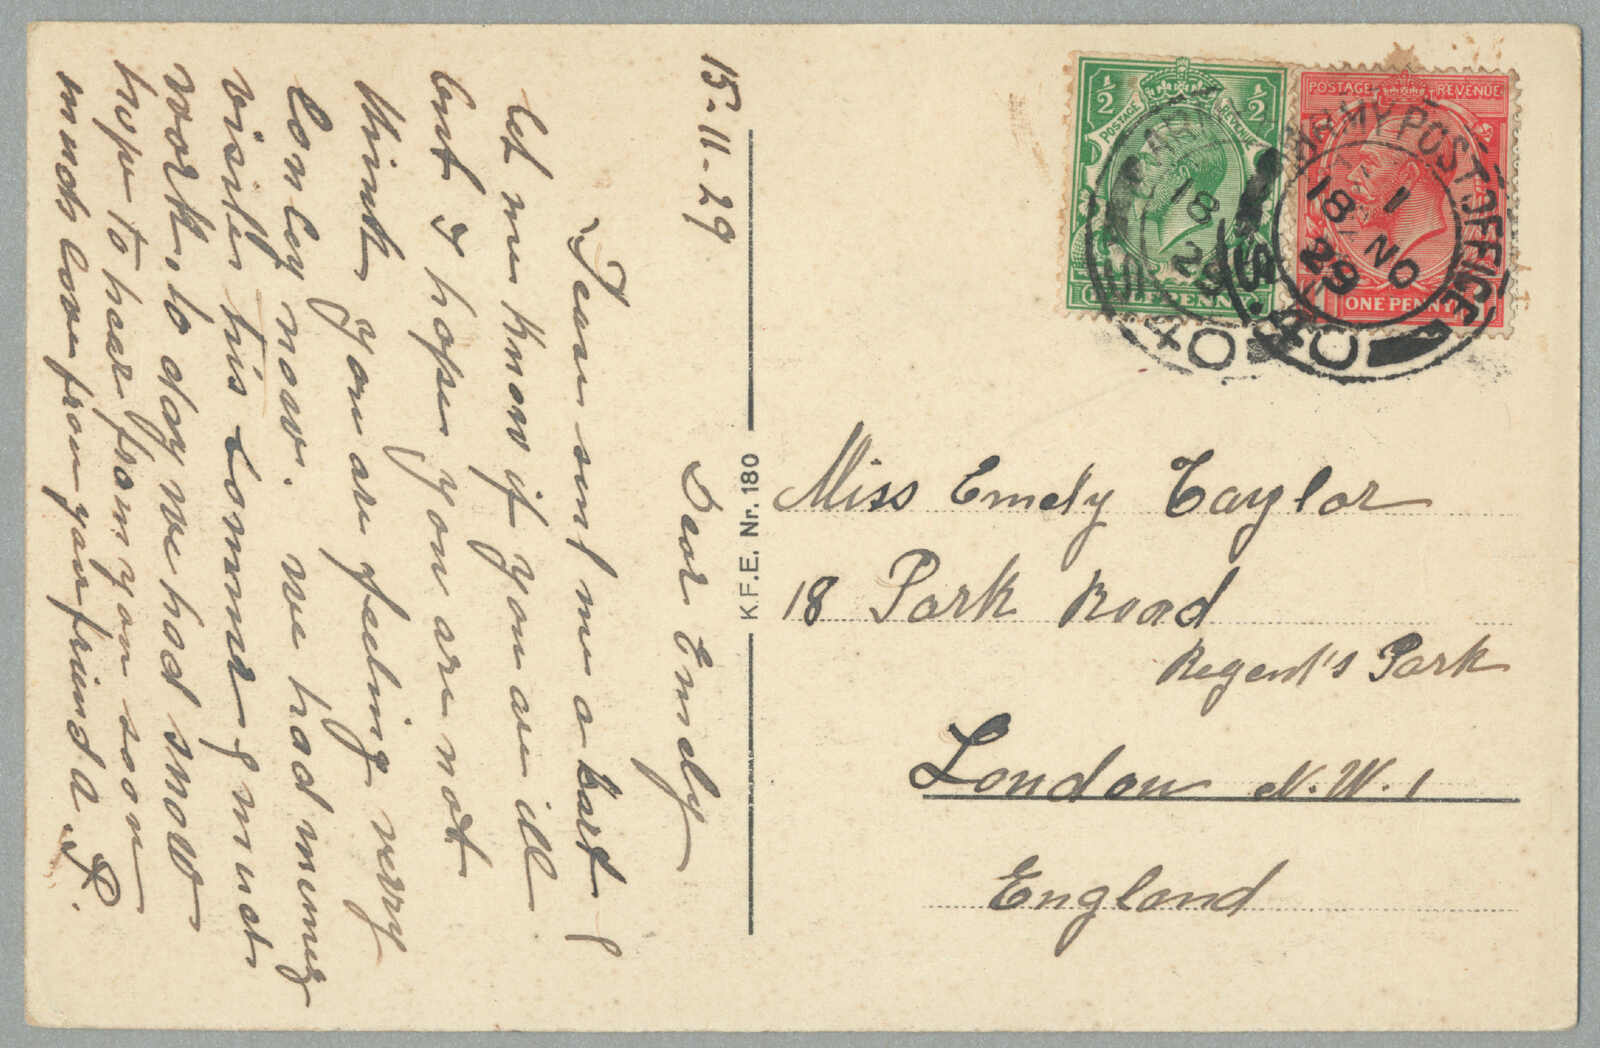 15-11-29
Dear Emely
sent me a kart &
let me know if you are ill
but I hope you are not
think you are feeling very
lonley now. we had
visiter this sommer & much
work. to day we had snow
hope to hear from you soon
love from your friend a P.
K.F.E. Nr. 180
½ ½
POSTAGE REVENUE
HALFPENNY
POSTAGE REVENUE
ONE PENNY
ARMY POST OFFICE
1
18 NO
29
18
29
Miss Emely Taylor
18 Park Road
Regent's Park
London N.W.1
England